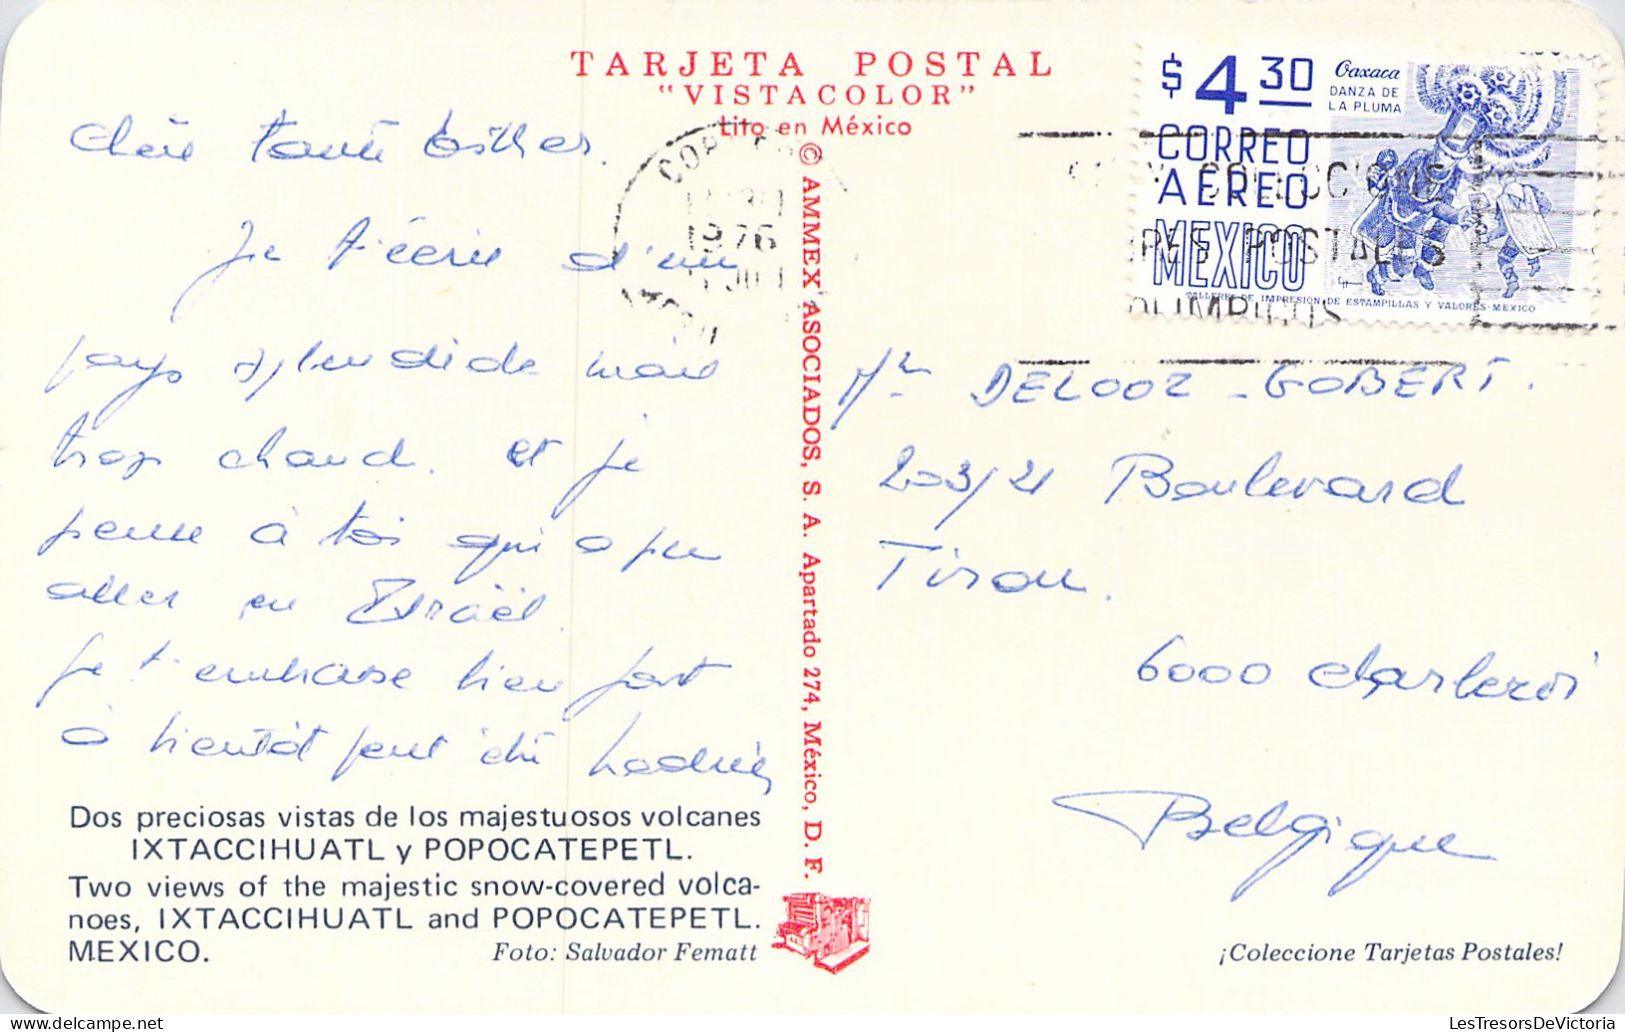 TARJETA POSTAL
"VISTACOLOR"
Lito en México
chère tante Esther.
Je t'écris d'un
pays splendide mais
trop chaud. et je
pense à toi qui a pu
aller en Israël.
je t'embrasse bien fort
à bientôt peut être
Dos preciosas vistas de los majestuosos volcanes
IXTACCIHUATL y POPOCATEPETL.
Two views of the majestic snow-covered volca-
noes, IXTACCIHUATL and POPOCATEPETL.
MEXICO.
Foto: Salvador Fematt
© AMMEX ASOCIADOS, S. A. Apartado 274, México, D. F.
$ 4 30
CORREO
AEREO
MEXICO
Oaxaca
DANZA DE
LA PLUMA
TALLERES DE IMPRESION DE ESTAMPILLAS Y VALORES-MEXICO
1976
POSTALES
OLIMPICOS
DELOOZ - GOBERT.
203/21 Boulevard
Tirou.
6000 charleroi
Belgique
¡Coleccione Tarjetas Postales!
LesTresorsDeVictoria
delcampe.net